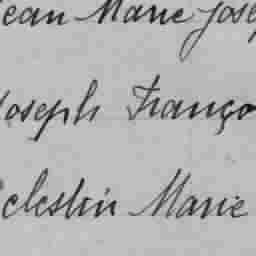 Jean Marie Josep
Joseph Franço
Celestin Marie